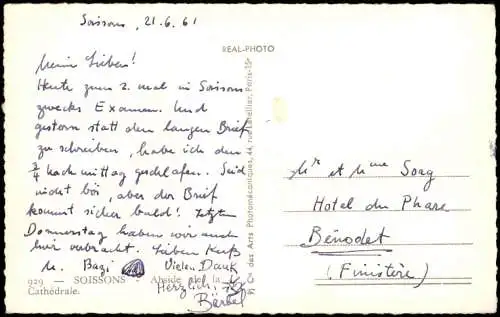 Soissons, 21.6.61
Meine Lieben!
Heute zum 2. mal in Soissons
zwecks Examen. Und
gestern statt den langen Brief
zu schreiben, habe ich den
Nachmittag geschlafen. Seid
nicht bös, aber der Brief
kommt sicher bald! Letzten
Donnerstag haben wir auch
hier verbracht. Lieben Kuß
Vielen Dank
Herzlichst
Bärbel
929 — SOISSONS - Abside de la
Cathédrale.
REAL-PHOTO
Cie des Arts Photomécaniques, 44, rue Letellier, Paris-15e
Mr et Mme Sorg
Hotel du Phare
Bénodet
(Finistère)